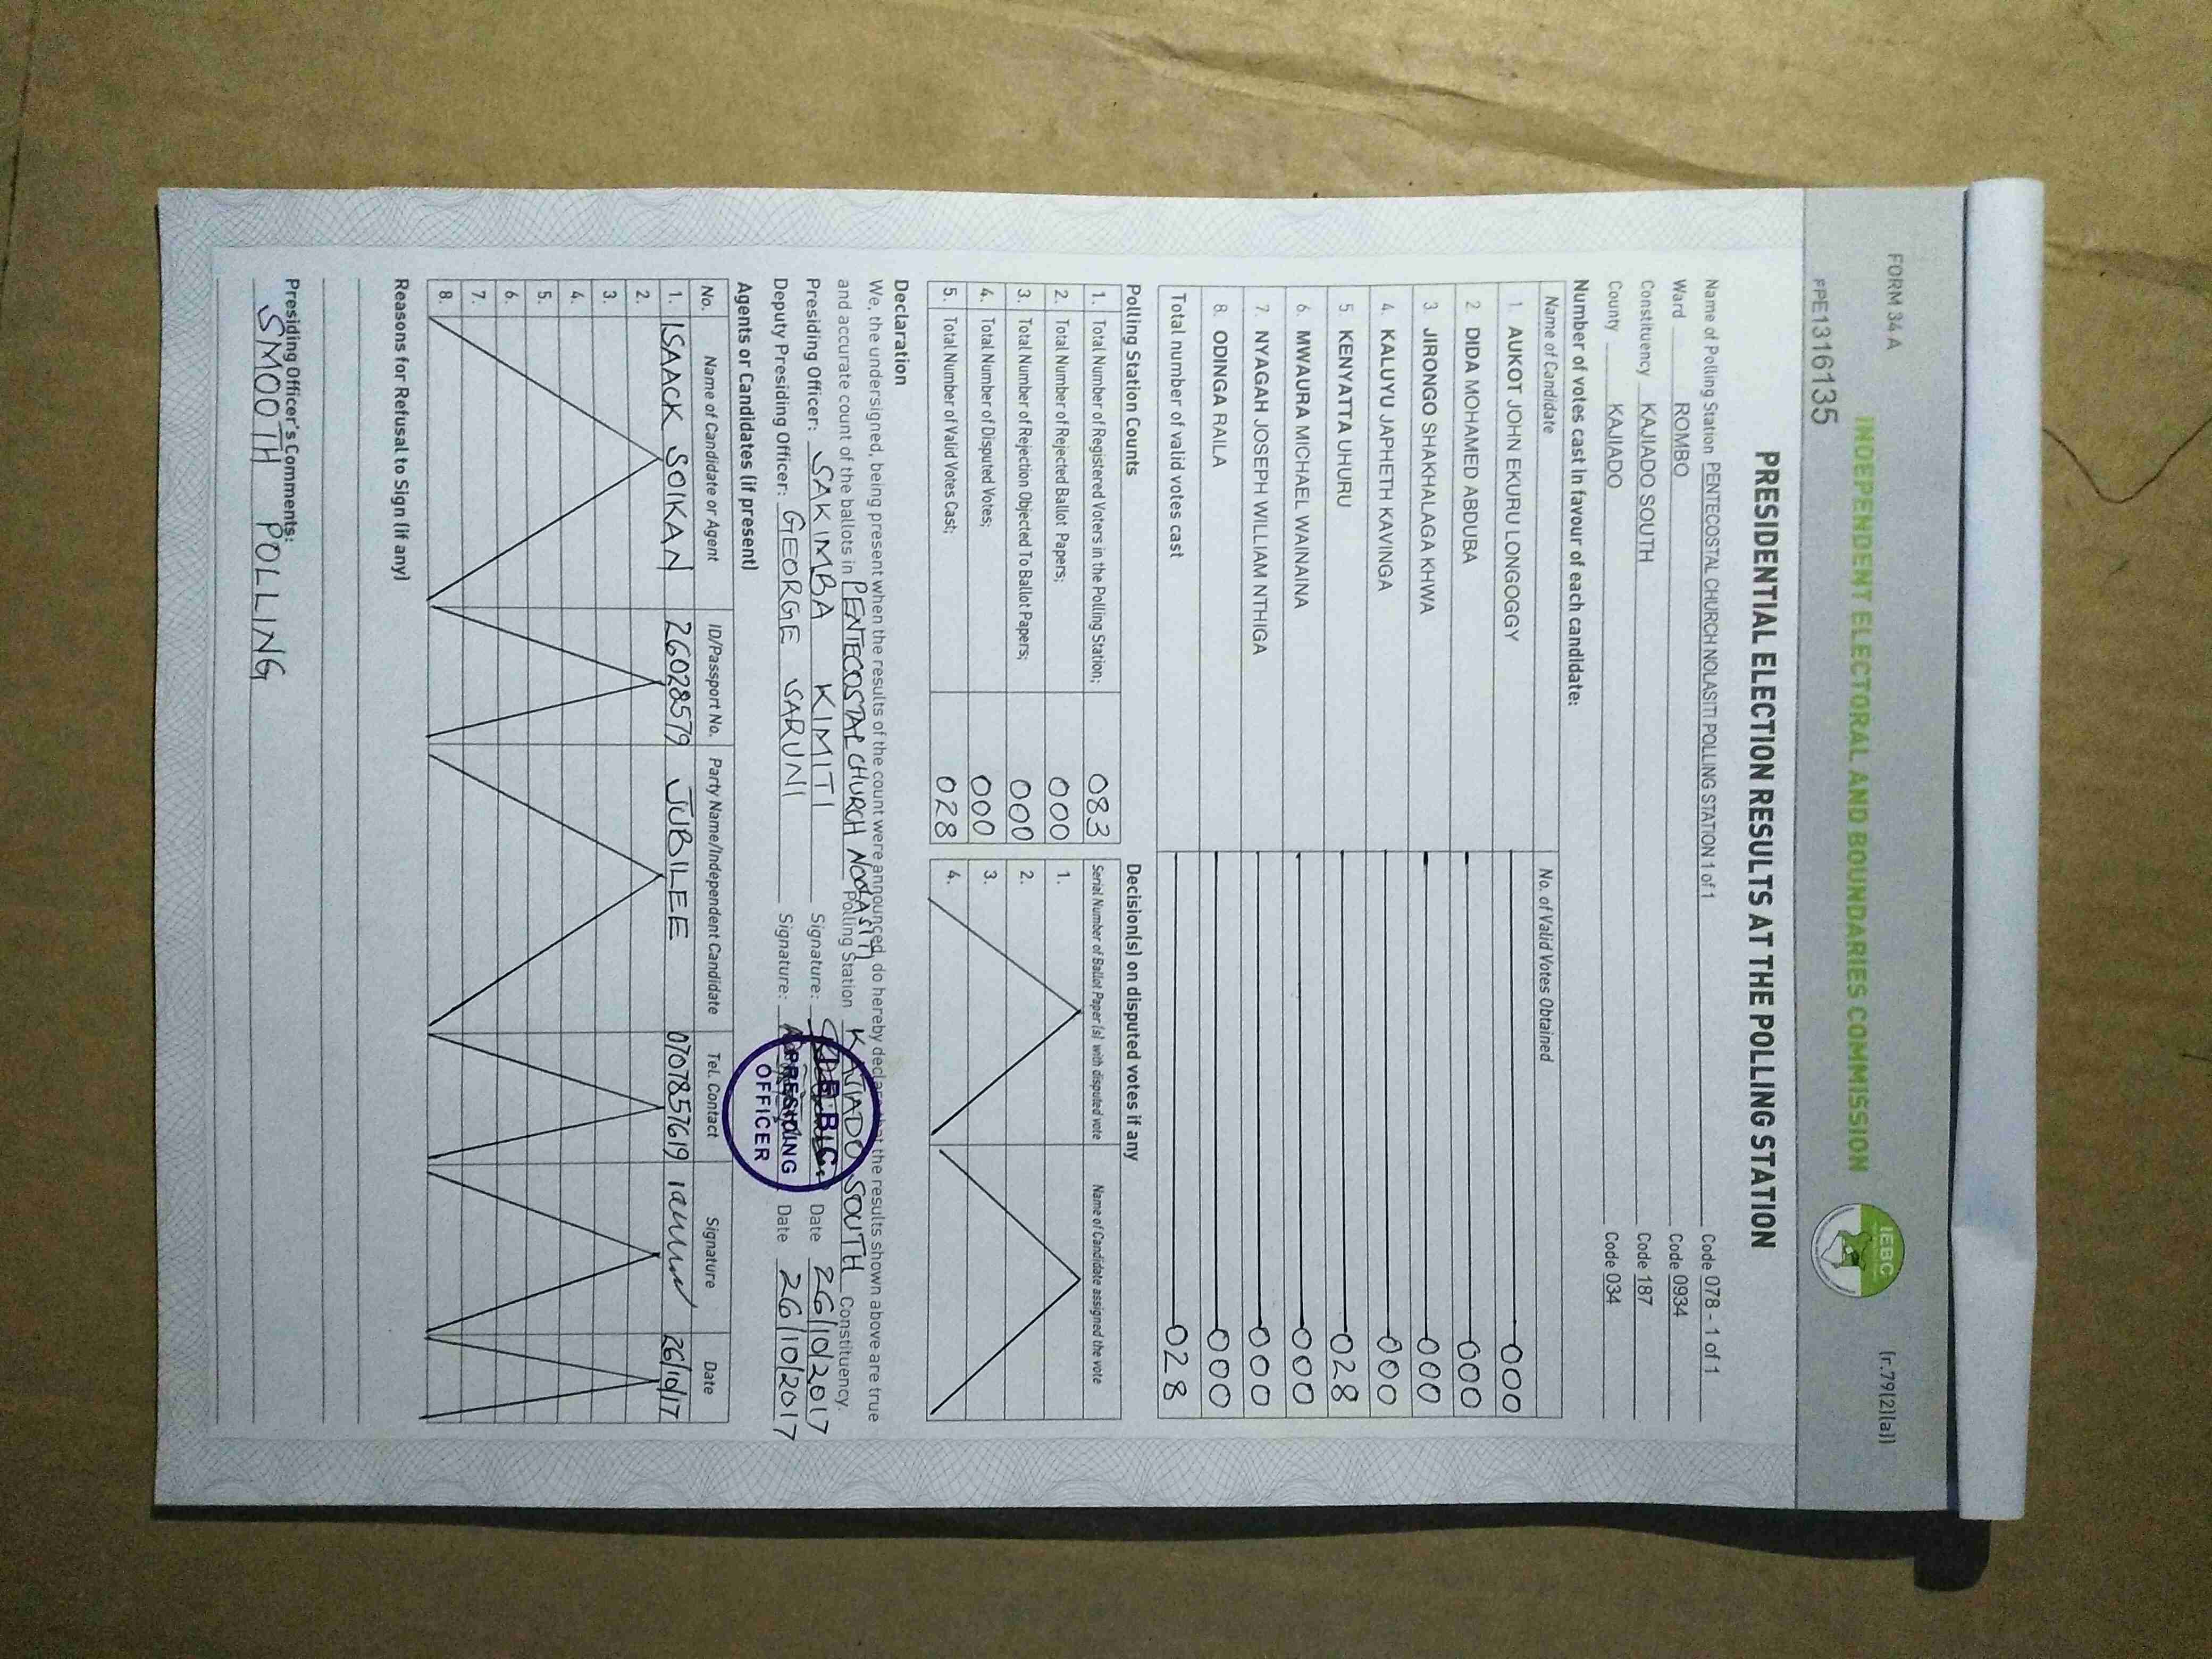 FORM 34 A
(r.79(2)(a))
INDEPENDENT ELECTORAL AND BOUNDARIES COMMISSION
IEBC
PPE1316135
PRESIDENTIAL ELECTION RESULTS AT THE POLLING STATION
Name of Polling Station PENTECOSTAL CHURCH NOLASITI POLLING STATION 1 of 1 Code 078 - 1 of 1
Ward ROMBO Code 0934
Constituency KAJIADO SOUTH Code 187
County KAJIADO Code 034
Number of votes cast in favour of each candidate:
Name of Candidate No. of Valid Votes Obtained
1. AUKOT JOHN EKURU LONGOGGY 000
2 DIDA MOHAMED ABDUBA 000
3 JIRONGO SHAKHALAGA KHWA 000
4. KALUYU JAPHETH KAVINGA 000
5 KENYATTA UHURU 028
6. MWAURA MICHAEL WAINAINA 000
7. NYAGAH JOSEPH WILLIAM NTHIGA 000
8. ODINGA RAILA 000
Total number of valid votes cast 028
Polling Station Counts
1. Total Number of Registered Voters in the Polling Station; 083
2. Total Number of Rejected Ballot Papers; 000
3. Total Number of Rejection Objected To Ballot Papers; 000
4. Total Number of Disputed Votes; 000
5. Total Number of Valid Votes Cast; 028
Decision(s) on disputed votes if any
Serial Number of Ballot Paper (s) with disputed vote Name of Candidate assigned the vote
1.
2.
3.
4.
Declaration
We, the undersigned, being present when the results of the count were announced, do hereby declare that the results shown above are true
and accurate count of the ballots in PENTECOSTAL CHURCH Polling Station KAJIADO SOUTH Constituency.
Presiding Officer: SAKIMBA KIMITI Signature: Date 26/10/2017
Deputy Presiding Officer: GEORGE SARUNI Signature: Date 26/10/2017
IEBC
PRESIDING
OFFICER
Agents or Candidates (if present)
No. Name of Candidate or Agent ID/Passport No. Party Name/Independent Candidate Tel. Contact Signature Date
1. ISAACK SOIKAN 26028579 JUBILEE 0707857619 26/10/17
2.
3.
4.
5.
6.
7.
8.
Reasons for Refusal to Sign (if any)
Presiding Officer's Comments:
SMOOTH POLLING